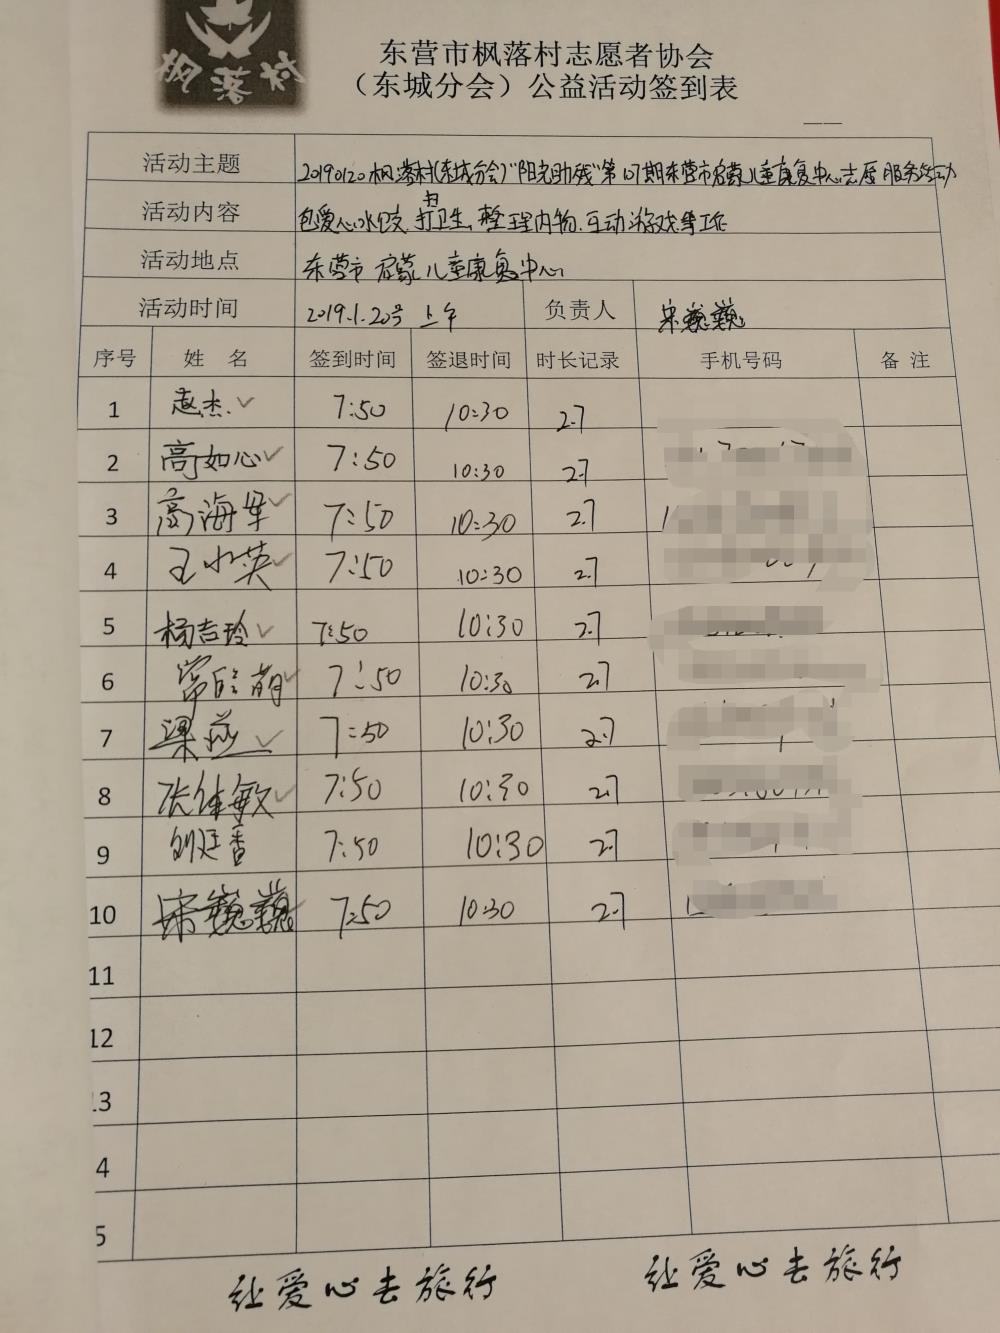 枫落村
东营市枫落村志愿者协会
（东城分会）公益活动签到表
活动主题 20190120枫落村(东城分会)"阳光助残"第107期东营市启蒙儿童康复中心志愿服务活动
活动内容 包爱心水饺、打扫卫生、整理内物、互动游戏等工作
活动地点 东营市启蒙儿童康复中心
活动时间 2019.1.20号 上午 负责人 宋巍巍
序号 姓 名 签到时间 签退时间 时长记录 手机号码 备 注
1 赵杰 7:50 10:30 2.7
2 高如心 7:50 10:30 2.7
3 高海军 7:50 10:30 2.7
4 王小英 7:50 10:30 2.7
5 杨吉玲 7:50 10:30 2.7
6 常 萌 7:50 10:30 2.7
7 梁燕 7:50 10:30 2.7
8 张佳敏 7:50 10:30 2.7
9 刘廷香 7:50 10:30 2.7
10 宋巍巍 7:50 10:30 2.7
11
12
13
4
5
让爱心去旅行 让爱心去旅行